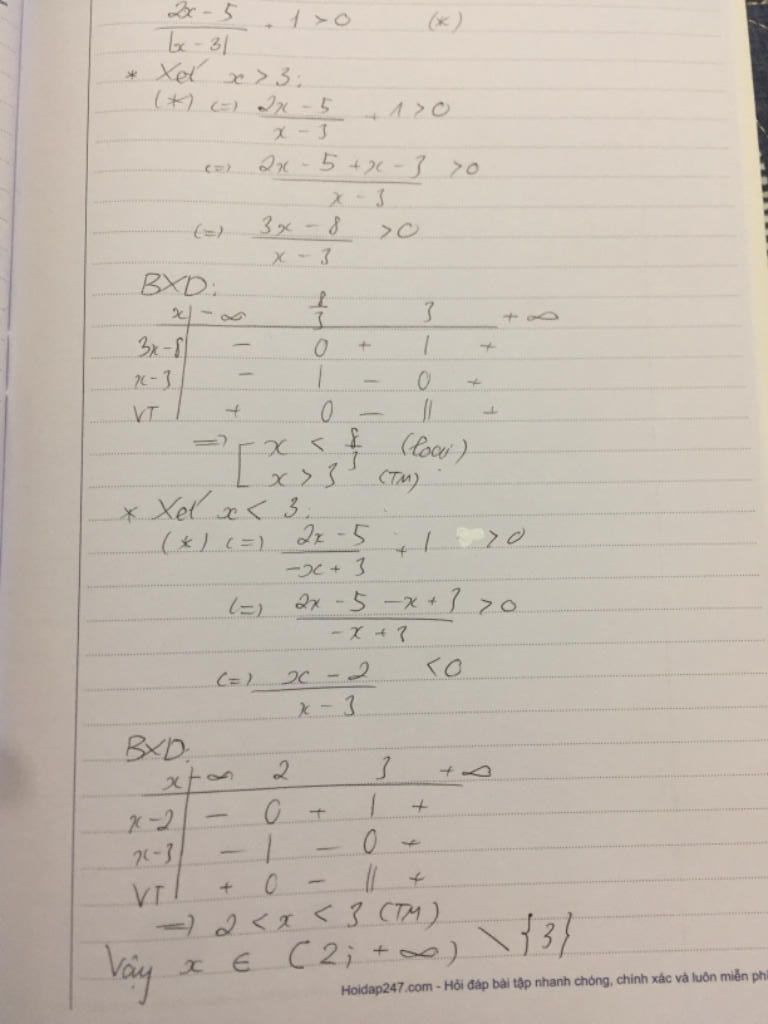 (2x - 5)/|x - 3| + 1 > 0 (*)
* Xét x > 3:
(*) (=) (2x - 5)/(x - 3) + 1 > 0
(=) (2x - 5 + x - 3)/(x - 3) > 0
(=) (3x - 8)/(x - 3) > 0
BXD:
x | -∞ 8/3 3 +∞
3x-8 | - 0 + | +
x-3 | - | - 0 +
VT | + 0 - || +
=> [ x < 8/3 (loại)
x > 3 (TM)
* Xét x < 3:
(*) (=) (2x - 5)/(-x + 3) + 1 > 0
(=) (2x - 5 - x + 3)/(-x + 3) > 0
(=) (x - 2)/(x - 3) < 0
BXD:
x | -∞ 2 3 +∞
x-2 | - 0 + | +
x-3 | - | - 0 +
VT | + 0 - || +
=> 2 < x < 3 (TM)
Vậy x ∈ (2; +∞) \ {3}
Hoidap247.com - Hỏi đáp bài tập nhanh chóng, chính xác và luôn miễn phí